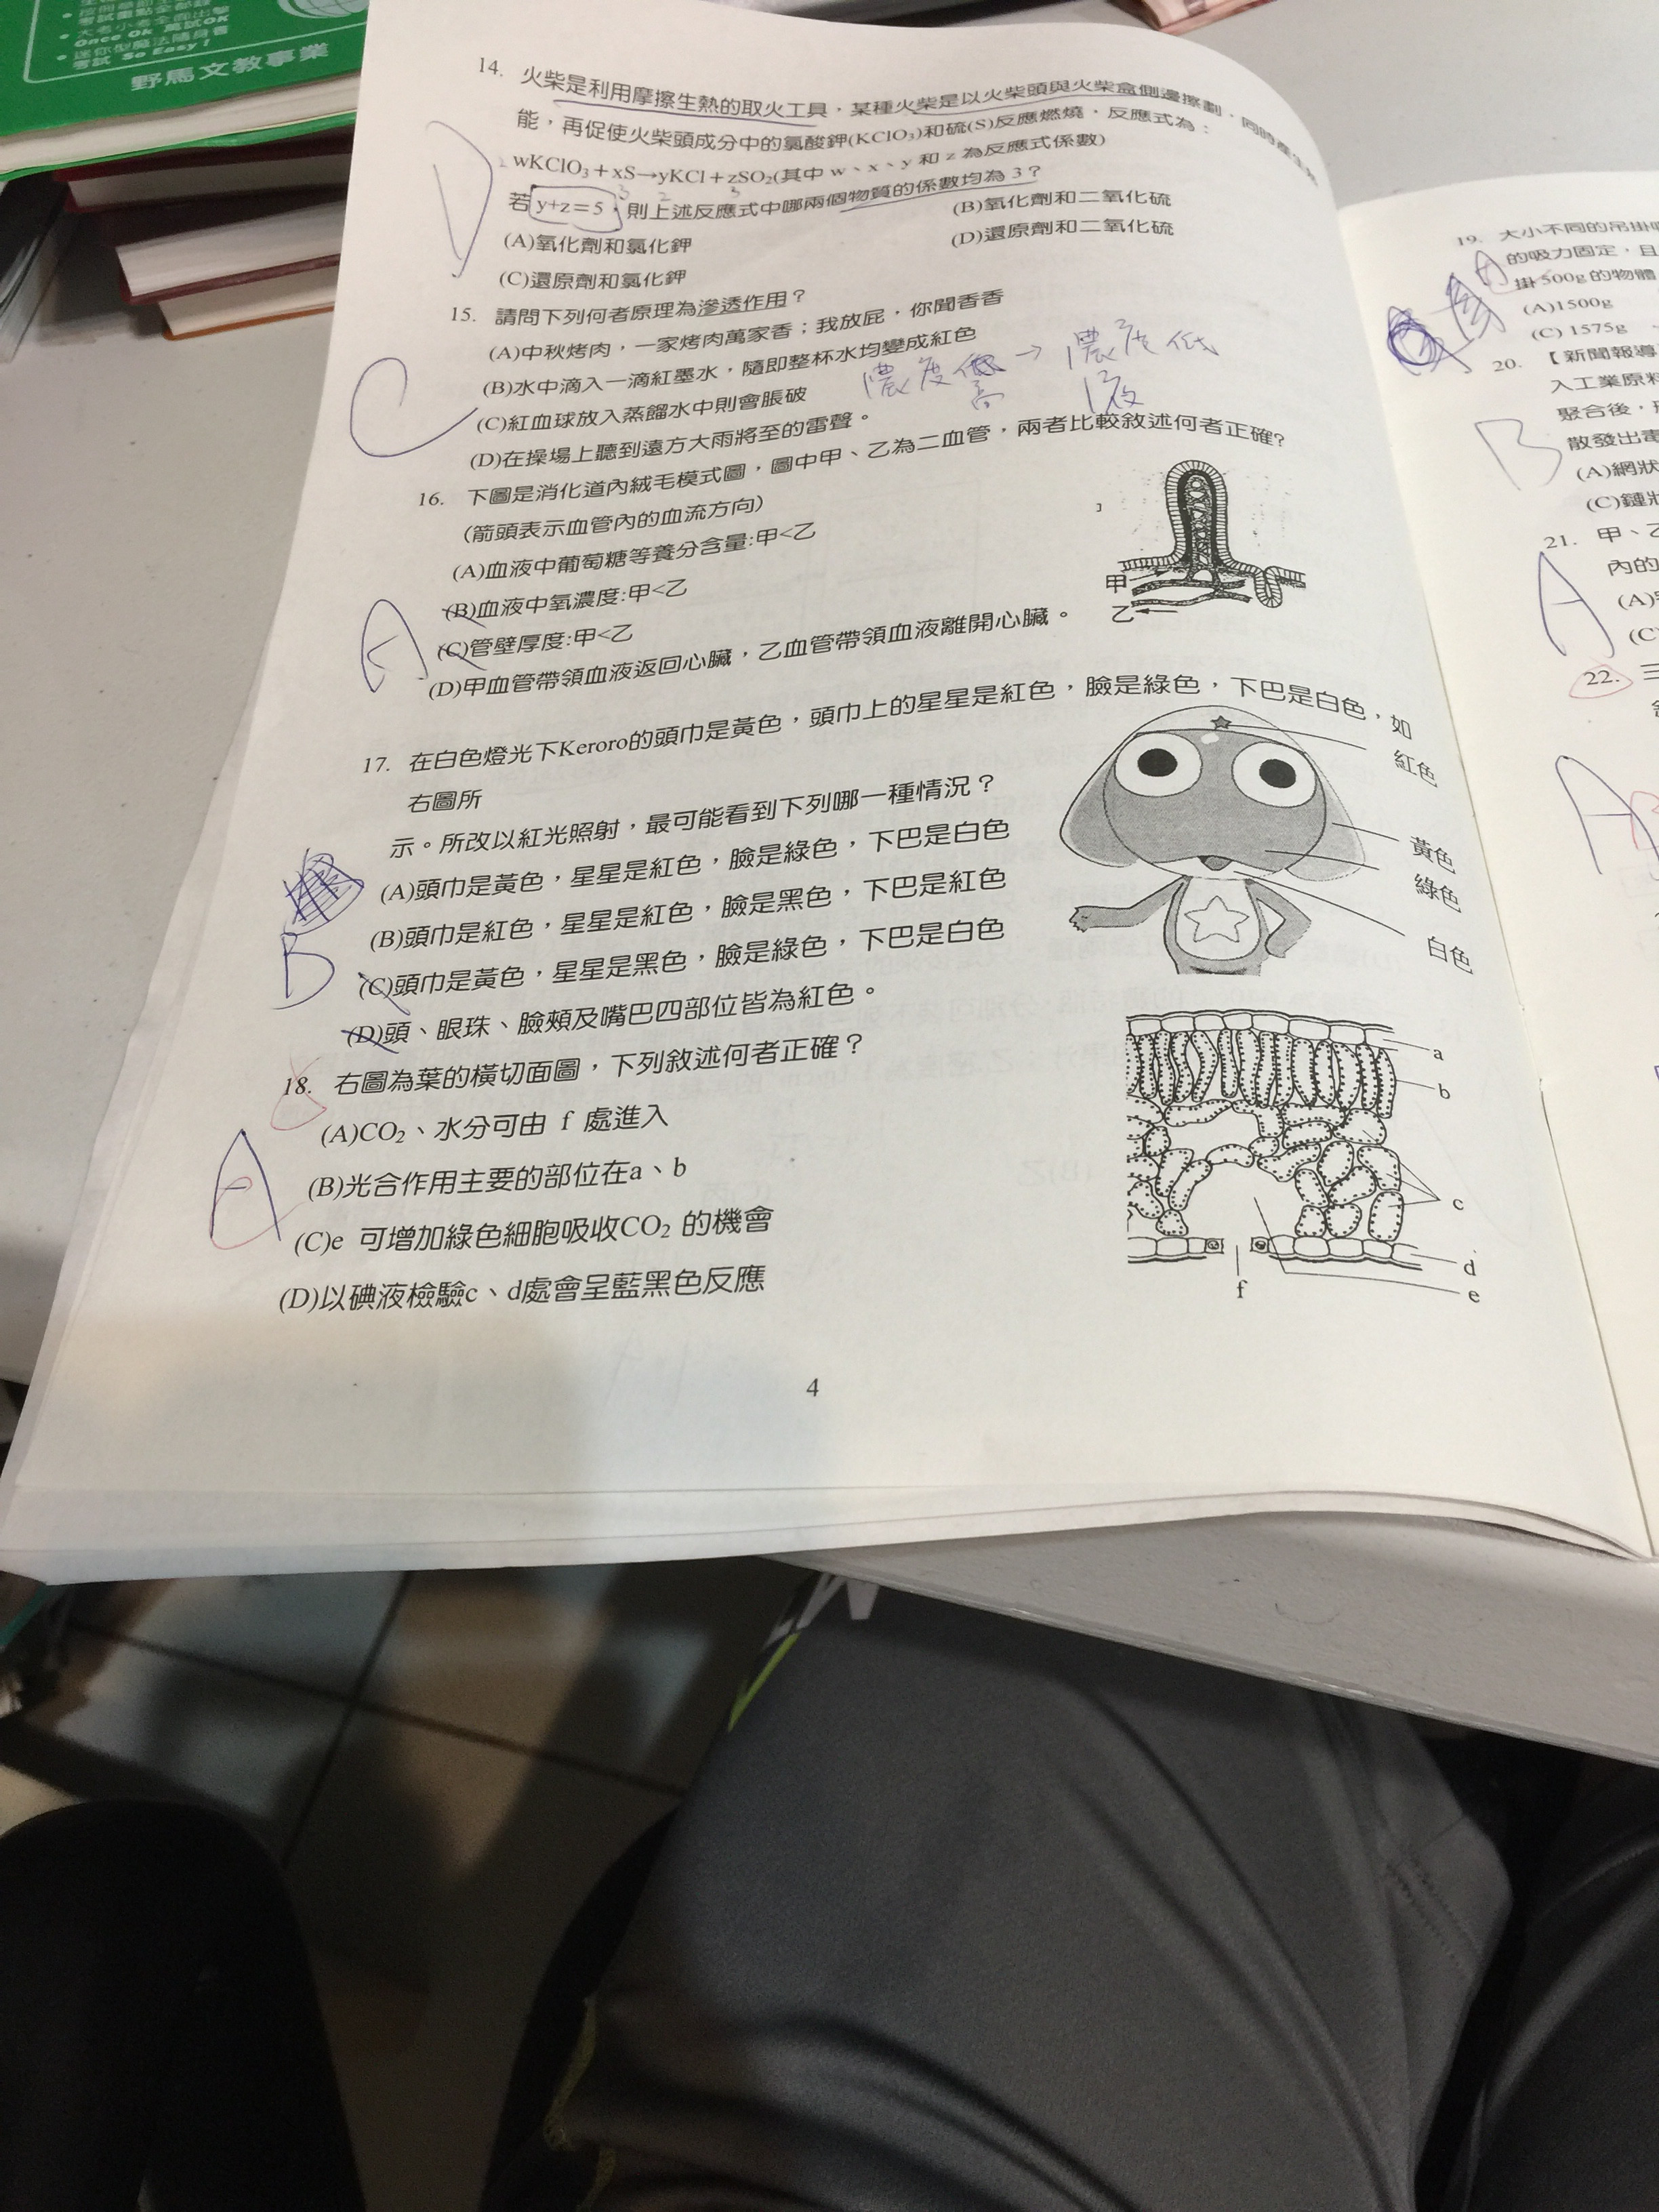 考試重點全都錄
大名小名全面出擊
Once Ok 萬試OK
迷你型魔法隨身書
考試 So Easy!
野馬文教事業
14. 火柴是利用摩擦生熱的取火工具,某種火柴是以火柴頭與火柴盒側邊擦劃,同時產生
能,再促使火柴頭成分中的氯酸鉀(KClO₃)和硫(S)反應燃燒,反應式為:
wKClO₃+xS→yKCl+zSO₂(其中 w、x、y 和 z 為反應式係數)
2 3 2 3
若 y+z=5,則上述反應式中哪兩個物質的係數均為 3?
D
(A)氧化劑和氯化鉀
(B)氧化劑和二氧化硫
(C)還原劑和氯化鉀
(D)還原劑和二氧化硫
15. 請問下列何者原理為滲透作用?
(A)中秋烤肉,一家烤肉萬家香;我放屁,你聞香香
(B)水中滴入一滴紅墨水,隨即整杯水均變成紅色
濃度高→濃度低
液
C
(C)紅血球放入蒸餾水中則會脹破
(D)在操場上聽到遠方大雨將至的雷聲。
16. 下圖是消化道內絨毛模式圖,圖中甲、乙為二血管,兩者比較敘述何者正確?
(箭頭表示血管內的血流方向)
(A)血液中葡萄糖等養分含量:甲<乙
(B)血液中氧濃度:甲<乙
A
(C)管壁厚度:甲<乙
(D)甲血管帶領血液返回心臟,乙血管帶領血液離開心臟。
甲
乙
17. 在白色燈光下Keroro的頭巾是黃色,頭巾上的星星是紅色,臉是綠色,下巴是白色,如
右圖所
示。所改以紅光照射,最可能看到下列哪一種情況?
(A)頭巾是黃色,星星是紅色,臉是綠色,下巴是白色
(B)頭巾是紅色,星星是紅色,臉是黑色,下巴是紅色
B
(C)頭巾是黃色,星星是黑色,臉是綠色,下巴是白色
(D)頭、眼珠、臉頰及嘴巴四部位皆為紅色。
紅色
黃色
綠色
白色
18. 右圖為葉的橫切面圖,下列敘述何者正確?
(A)CO₂、水分可由 f 處進入
A
(B)光合作用主要的部位在a、b
(C)e 可增加綠色細胞吸收CO₂ 的機會
(D)以碘液檢驗c、d處會呈藍黑色反應
a
b
c
d
e
f
4
19. 大小不同的吊掛
的吸力固定,且
掛500g的物體
A
(A)1500g
(C) 1575g
20. 【新聞報導
入工業原料
聚合後,
B
散發出毒
(A)網狀
(C)鏈狀
21. 甲、乙
內的
A
(A)
(C)
22. 三
A